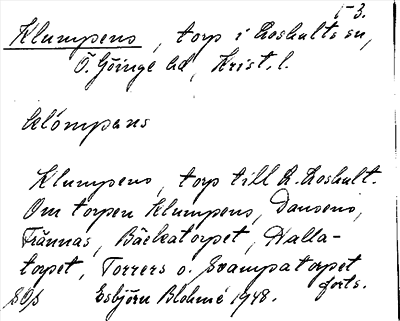 1-3.
Klumpens, torp i Loshults sn,
Ö. Göinge hd, Krist. l.
klómpans
Klumpens, torp till L. Loshult.
Om torpen Klumpens, Dansens,
Frännas, Bäckatorpet, Halla-
torpet, Torrers o. Svampatorpet
forts.
SOS Esbjörn Blohmé 1948.